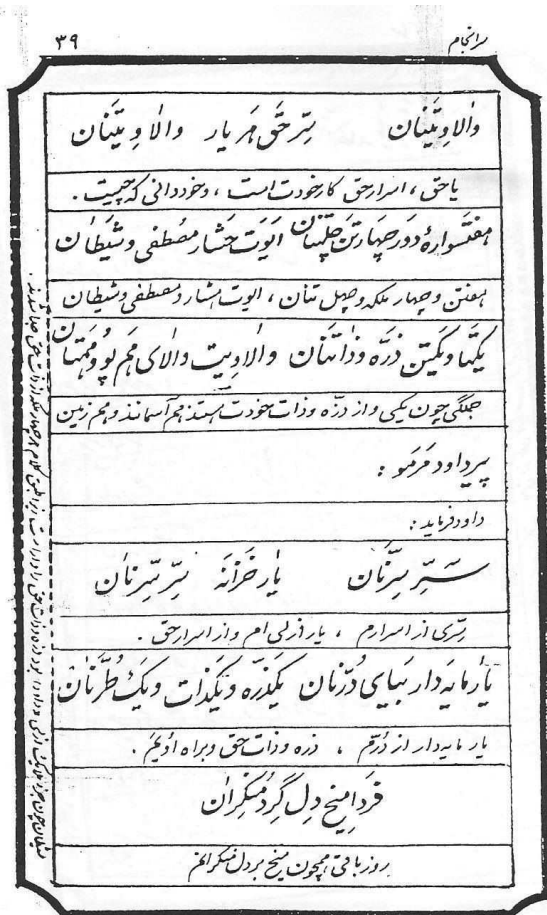 سرانجام
۳۹
والاویتنان سِرّ حَق هَر یار والاویتنان
یا حق ، اسرار حق کار خودت است ، و خود دانی که چیست .
هفتسوارهٔ دَور چهارتَن چلتنان ایوَت حَشار مصُطفی و شیَطان
هفتن و چهار ملکه و چهل تنان ، ایوت هشار و مصطفی و شیطان
یکتا و یکتن ذَرّه و ذاتنان والاویت والای هَم پو و
جملگی چون یکی و از ذرّه و ذات خودت هستند هم آسمانند و هم زمین
پیر داود مَرمو :
داود فرماید :
سَرِّ سِرّنان یار خَزانه سِرّ سِرّنان
سِرّی از اسرارم ، یار ازلی ام و از اسرار حق .
یار مایه دار بیای دُرنان یکذَرّه و یکذات و یک طُرّنان
یار مایه دار از دُرّم ، ذره و ذات حق و براه اویم .
فَردا میخ دِل گِرد مُنکِران
روز باقی همچون میخ بر دل منکرانم